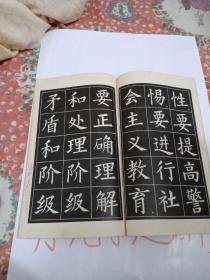 性要提高警
惕要进行社
会主义教育
要正确理解
和处理阶级
矛盾和阶级